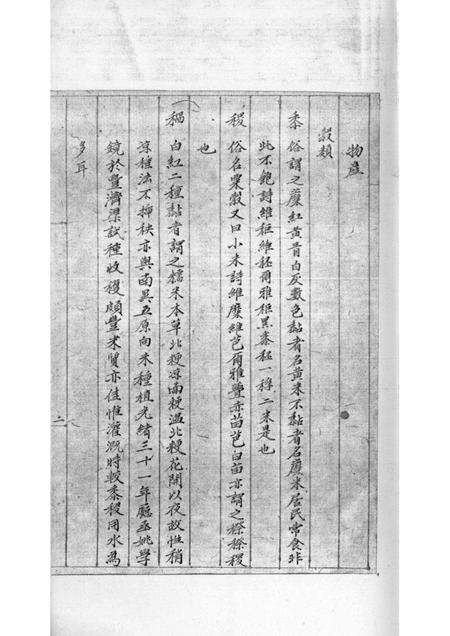 物產
穀類
黍 俗謂之糜紅黃青白灰數色黏者名黃米不黏者名糜米居民常食非
此不飽詩維秬維秠爾雅秬黑黍秠一稃二米是也
稷 俗名粟穀又曰小米詩維糜維芑爾雅虋赤苗芑白苗亦謂之穄穄稷
也
稻 白紅二種黏者謂之糯米本草北粳涼南粳溫北粳花開以夜故性稍
涼種法不揷秧亦與南異五原向未種植光緒三十一年廳丞姚學
鏡於豐濟渠試種收穫頗豐米質亦佳惟灌溉時較黍稷用水為
多耳
二